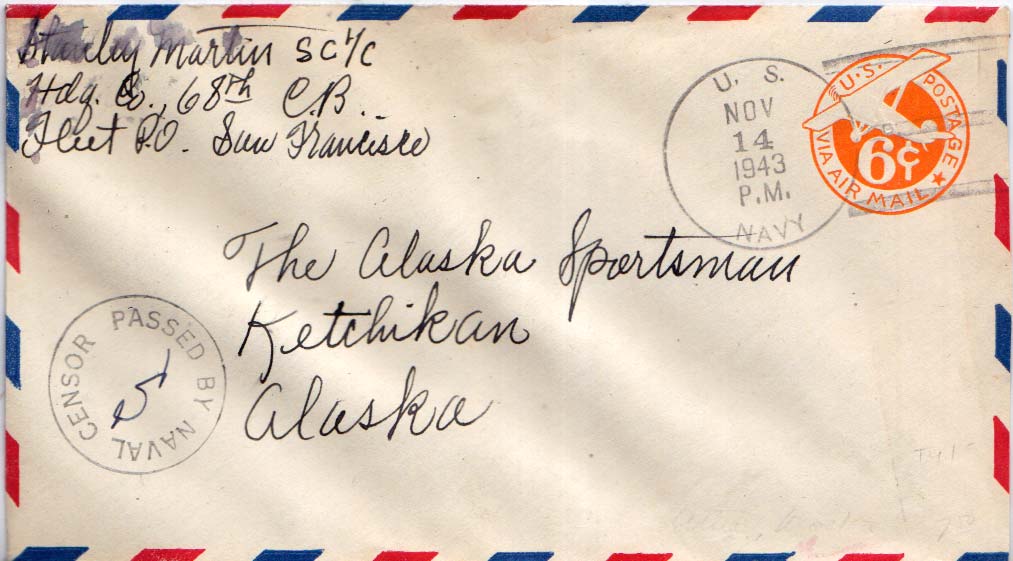 Stanley Martin SC 1/C
Hdq. Co., 68th C.B.
Fleet P.O. San Francisco
U. S.
NOV
14
1943
P.M.
NAVY
U.S. POSTAGE
6¢
VIA AIR MAIL
The Alaska Sportsman
Ketchikan
Alaska
PASSED BY NAVAL CENSOR